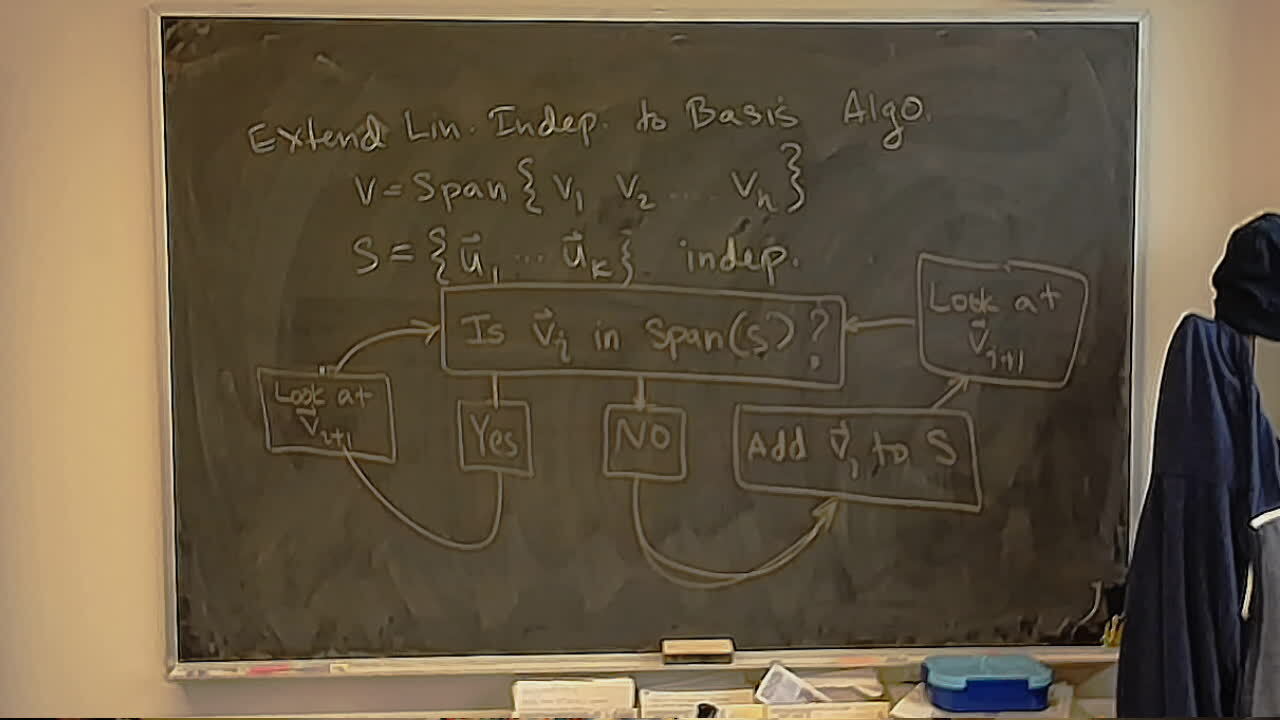 Extend Lin. Indep. to Basis Algo.
V = Span { V₁ V₂ ... Vₙ }
S = { u⃗₁ ... u⃗ₖ } indep.
Is v⃗ᵢ in span(S)?
Look at v⃗ᵢ₊₁
Look at v⃗ᵢ₊₁
Yes
No
Add v⃗ᵢ to S